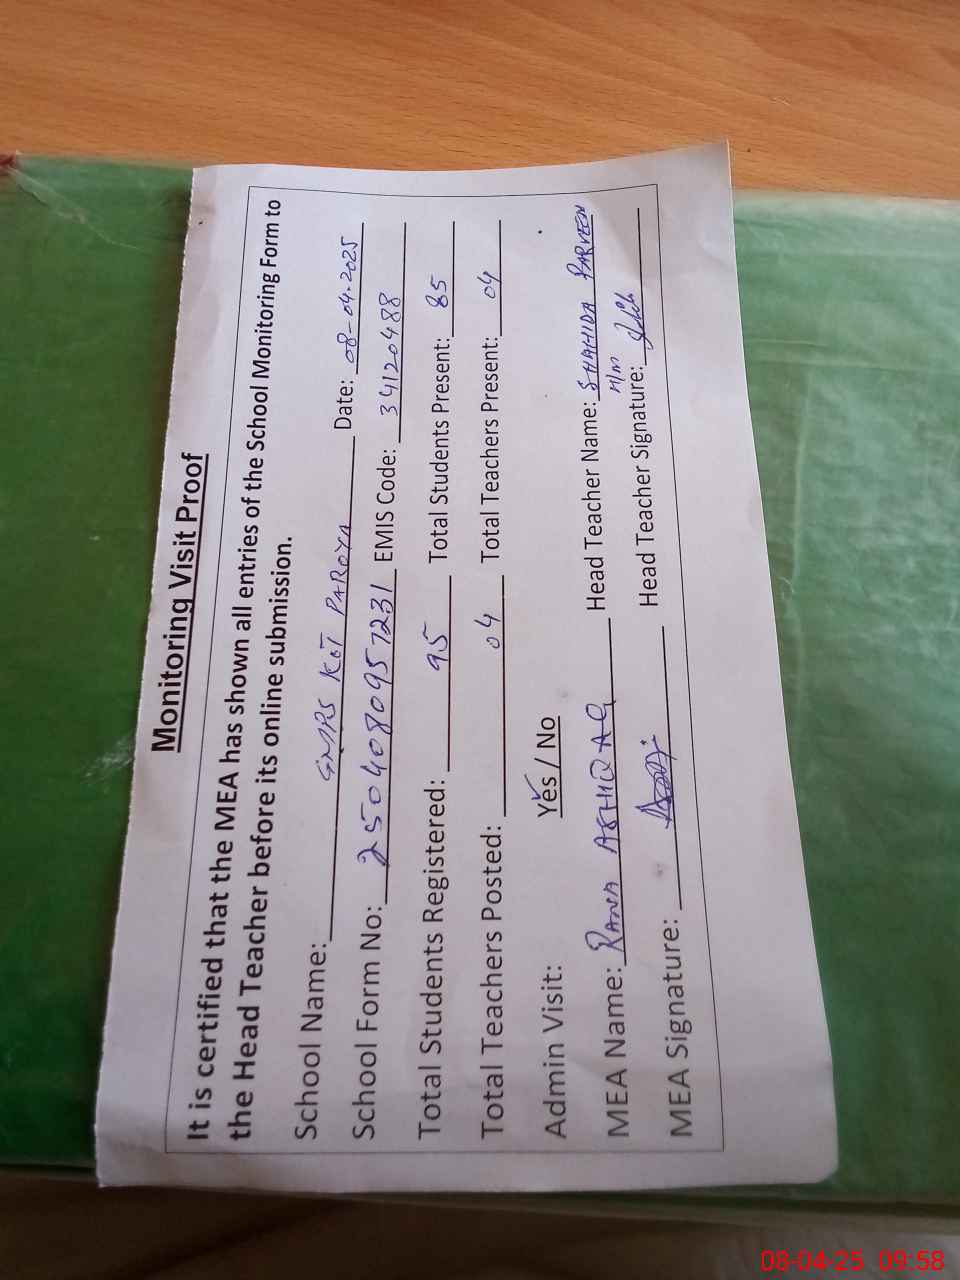 Monitoring Visit Proof
It is certified that the MEA has shown all entries of the School Monitoring Form to
the Head Teacher before its online submission.
School Name: GMPS KOT PAROYA Date: 08-04-2025
School Form No: 2504080957231 EMIS Code: 34120488
Total Students Registered: 95 Total Students Present: 85
Total Teachers Posted: 04 Total Teachers Present: 04
Admin Visit: Yes / No
MEA Name: RANA ASHIQ ALI Head Teacher Name: SHAHIDA PARVEEN
H/M
MEA Signature: Head Teacher Signature:
08-04-25 09:58